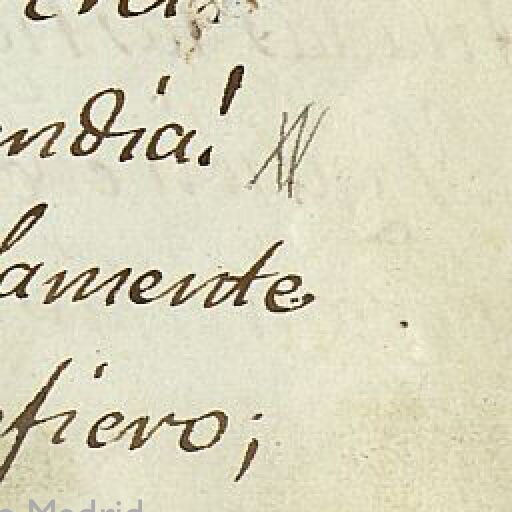 ndia!
lamente
fiero;
Madrid